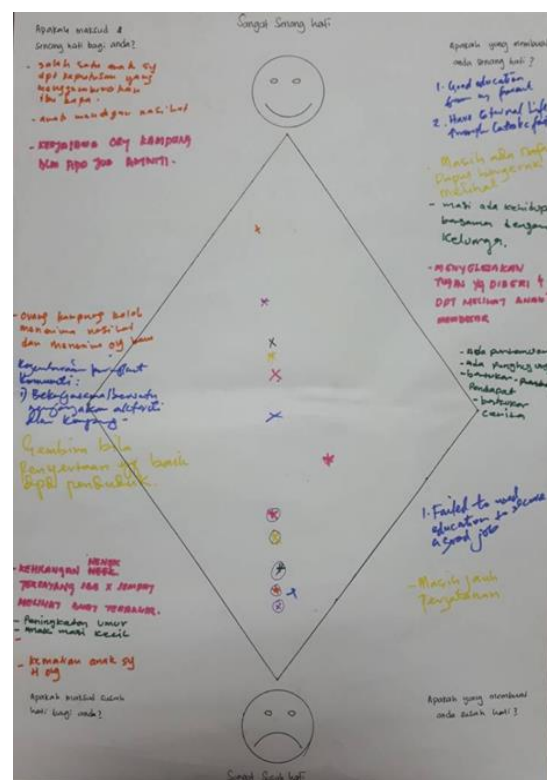 Sangat Senang hati
Apakah maksud
Senang hati bagi anda?
- salah satu anak sy
dpt keputusan yang
menggembirakan
ibu bapa.
- anak mendengar nasihat
- KERJASAMA ORG KAMPUNG
DLM APA JUA AKTIVITI.
- orang kampung boleh
menerima nasihat
dan menerima
Kegembiraan
Komuniti:
1) Bekerjasama/bersatu
aktiviti
dlm kampung -
Gembira bila
Penyertaan yg baik
drpd penduduk.
- KEHILANGAN NENEK
X SEMPAT
MELIHAT BUAT TERAKHIR.
- Peningkatan umur
- Anak masi kecil
- Kematian anak sy
4 org
Apakah maksud susah
hati bagi anda?
Apakah yang membuat
anda senang hati?
1. Good education
from my parent
2. Have Eternal Life
through Catholic
Masih ada
Dapat bergerak
melihat
- masi ada
bersama dengan
Keluarga.
- MENYELESAIKAN
TUGAN YG DIBERI &
DPT MELIHAT ANAK
MEMBESAR
- ada
- ada
- bertukar-
Pendapat
- bertukar
cerita
1. Failed to used
education to secure
a good job
- Masih jauh
Perjalanan
Apakah yang membuat
anda susah hati?
Sangat Susah hati